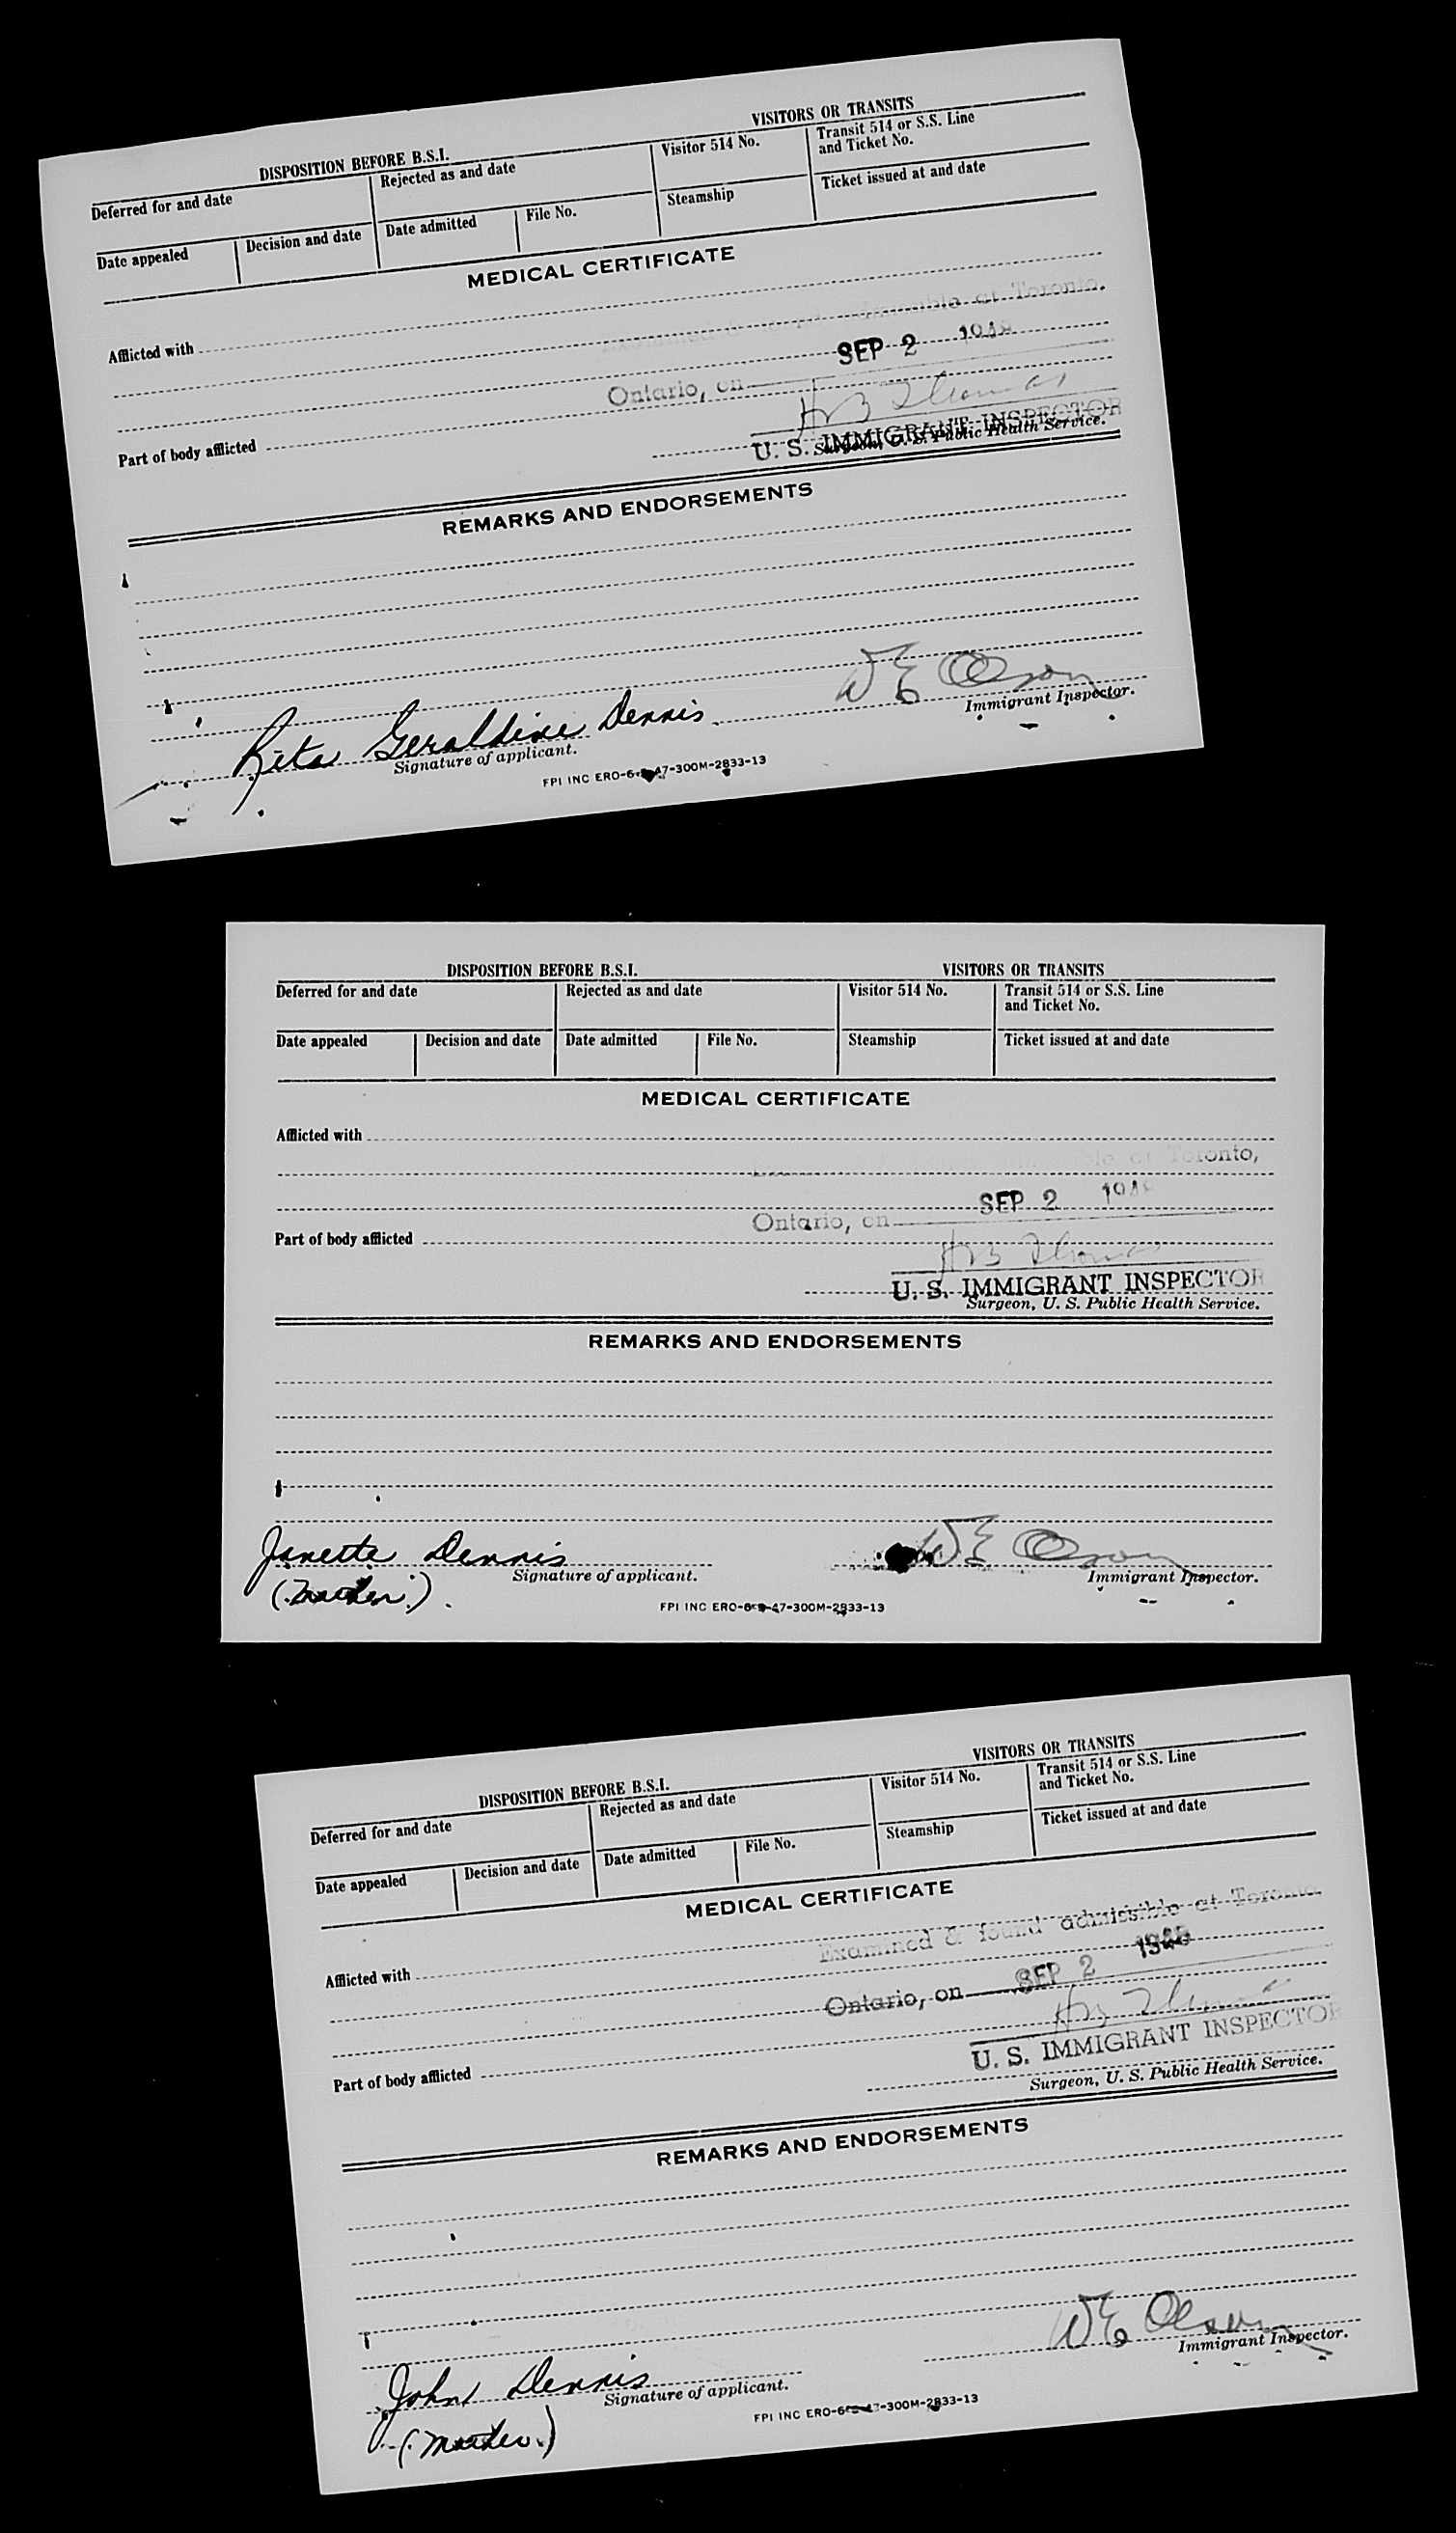 DISPOSITION BEFORE B.S.I. VISITORS OR TRANSITS
Deferred for and date Rejected as and date Visitor 514 No. Transit 514 or S.S. Line and Ticket No.
Date appealed Decision and date Date admitted File No. Steamship Ticket issued at and date
MEDICAL CERTIFICATE
Afflicted with
at Toronto,
SEP 2 1948
Ontario, on
Part of body afflicted
U. S. IMMIGRANT INSPECTOR
Surgeon, U. S. Public Health Service.
REMARKS AND ENDORSEMENTS
W E Olson
Immigrant Inspector.
Rita Geraldine Dennis
Signature of applicant.
FPI INC ERO-6-47-300M-2833-13
DISPOSITION BEFORE B.S.I. VISITORS OR TRANSITS
Deferred for and date Rejected as and date Visitor 514 No. Transit 514 or S.S. Line
and Ticket No.
Date appealed Decision and date Date admitted File No. Steamship Ticket issued at and date
MEDICAL CERTIFICATE
Afflicted with
Toronto,
SEP 2 1948
Ontario, on
Part of body afflicted
U. S. IMMIGRANT INSPECTOR
Surgeon, U. S. Public Health Service.
REMARKS AND ENDORSEMENTS
Janette Dennis W E Olson
Signature of applicant. Immigrant Inspector.
(Mother.)
FPI INC ERO-6-47-300M-2833-13
DISPOSITION BEFORE B.S.I. VISITORS OR TRANSITS
Deferred for and date Rejected as and date Visitor 514 No. Transit 514 or S.S. Line
and Ticket No.
Date appealed Decision and date Date admitted File No. Steamship Ticket issued at and date
MEDICAL CERTIFICATE
Examined & found admissible at Toronto,
Afflicted with
Ontario, on SEP 2 1948
Part of body afflicted
U. S. IMMIGRANT INSPECTOR
Surgeon, U. S. Public Health Service.
REMARKS AND ENDORSEMENTS
W E Olson
Immigrant Inspector.
John Dennis
Signature of applicant.
(Mother.)
FPI INC ERO-6-47-300M-2833-13